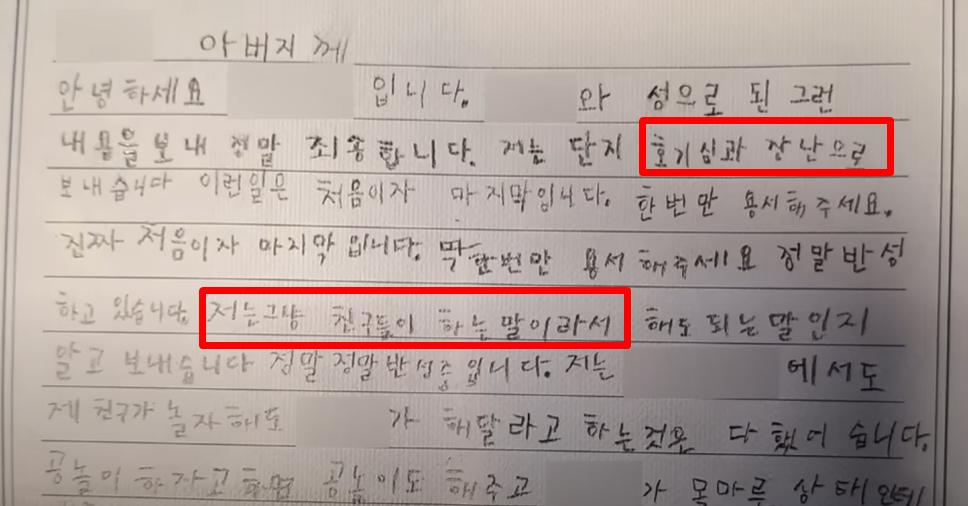 아버지께
안녕하세요 입니다. 와 성으로 된 그런
내용을 보내 정말 죄송합니다. 저는 단지 호기심과 장난으로
보내습니다 이런일은 처음이자 마지막입니다. 한번만 용서해주세요.
진짜 처음이자 마지막입니다. 딱한번만 용서해주세요 정말반성
하고 있습니다. 저는그냥 친구들이 하는말이라서 해도되는말인지
알고 보내습니다 정말정말반성중입니다. 저는 에서도
제친구가 놀자해도 가 해달라고 하는것은 다했어습니다.
공놀이 하자고하면 공놀이도 해주고 가 목마루 상태인데